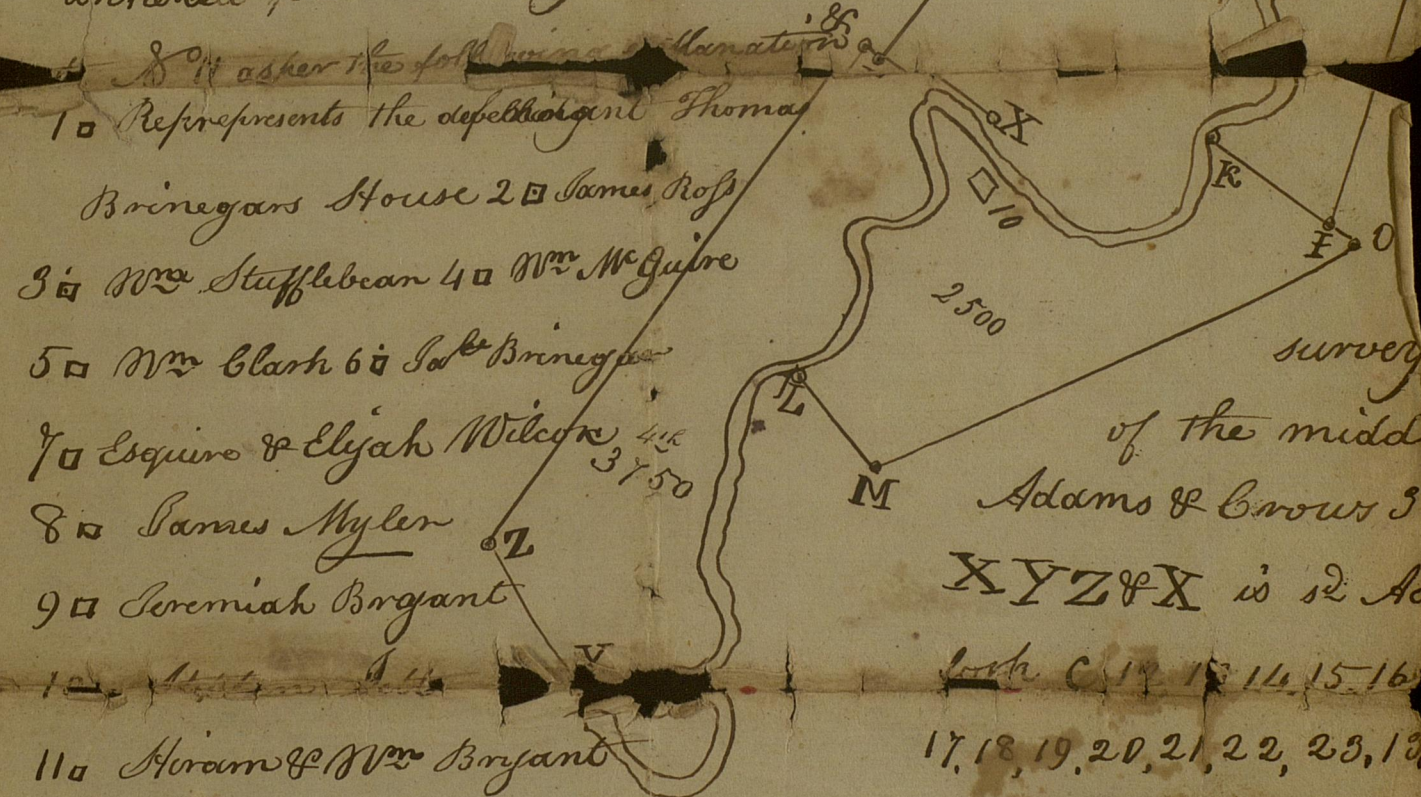 asker the following
&
1 Represents the defendant Thomas
Brinegars House 2 James Ross
3 Wm Stufflebean 4 Wm McGuire
5 Wm Clark 6 Brinegar
7 Esquire & Elijah Wilcox
8 James Myler
9 Jeremiah Bryant
11 Hiram & Wm Bryant
X
10
K
I
O
2500
L
M
4th
3750
Z
Y
survey
of the midd
Adams & Crows 3
XYZ&X is sd
C 14 15 16
17, 18, 19, 20, 21, 22, 23, 13